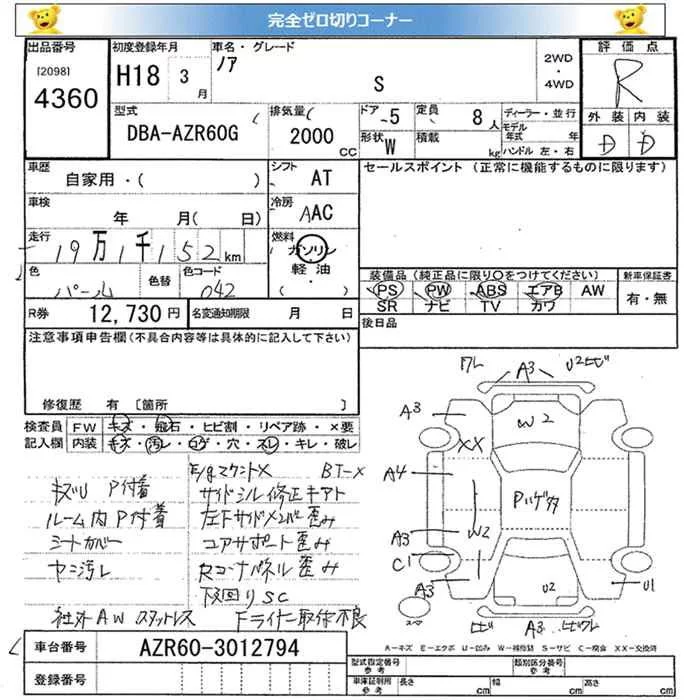 完全ゼロ切りコーナー
出品番号
[2098]
4360
初度登録年月
H18 3
月
車名・グレード
ノア
S
2WD
・
4WD
評価点
R
型式
DBA-AZR60G
排気量
2000
CC
ドア
5
定員
8
人
形状
W
積載
kg
ディーラー・並行
モデル
年式
年
ハンドル 左・右
外装 内装
D D
車歴
自家用・( )
シフト
AT
セールスポイント (正常に機能するものに限ります)
車検
年 月( 日)
冷房
AAC
走行
19万1千152km
燃料
ガソリン
軽油
( ・ )
色
パール
色替
色コード
042
装備品 (純正品に限り○をつけてください)
PS PW ABS エアB AW
SR ナビ TV カワ
新車保証書
有・無
R券
12,730円
名変通知期限
月 日
後日品
注意事項申告欄(不具合内容等は具体的に記入して下さい)
修復歴 有 〔箇所 〕
検査員
記入欄
FW キズ・飛石・ヒビ割・リペア跡・×要
内装 キズ・汚レ・コゲ・穴・スレ・キレ・破レ
E/gマウント× BTー×
キズU P付着
サイドシル修正キアト
ルーム内P付着
左Fサイドメンバー歪み
シートカバー
コアサポート歪み
ヤニ汚レ
Rコーナパネル歪み
下回りSC
社外AW スタットレス
Fライナー取付不良
ワレ A3 U2ヒビ
A3
W2
XX
A4
Pハゲタ
A3
W2
C1
A3
U2
U1
スペア
ヒビ A3 ヒビワレ
A-キズ E-エクボ U-凹み W-補修跡 S-サビ C-腐食 XX-交換済
車台番号
AZR60-3012794
登録番号
型式指定番号
参考
類別区分番号
参考
車庫証明用
参考
長さ
cm
幅
cm
高さ
cm